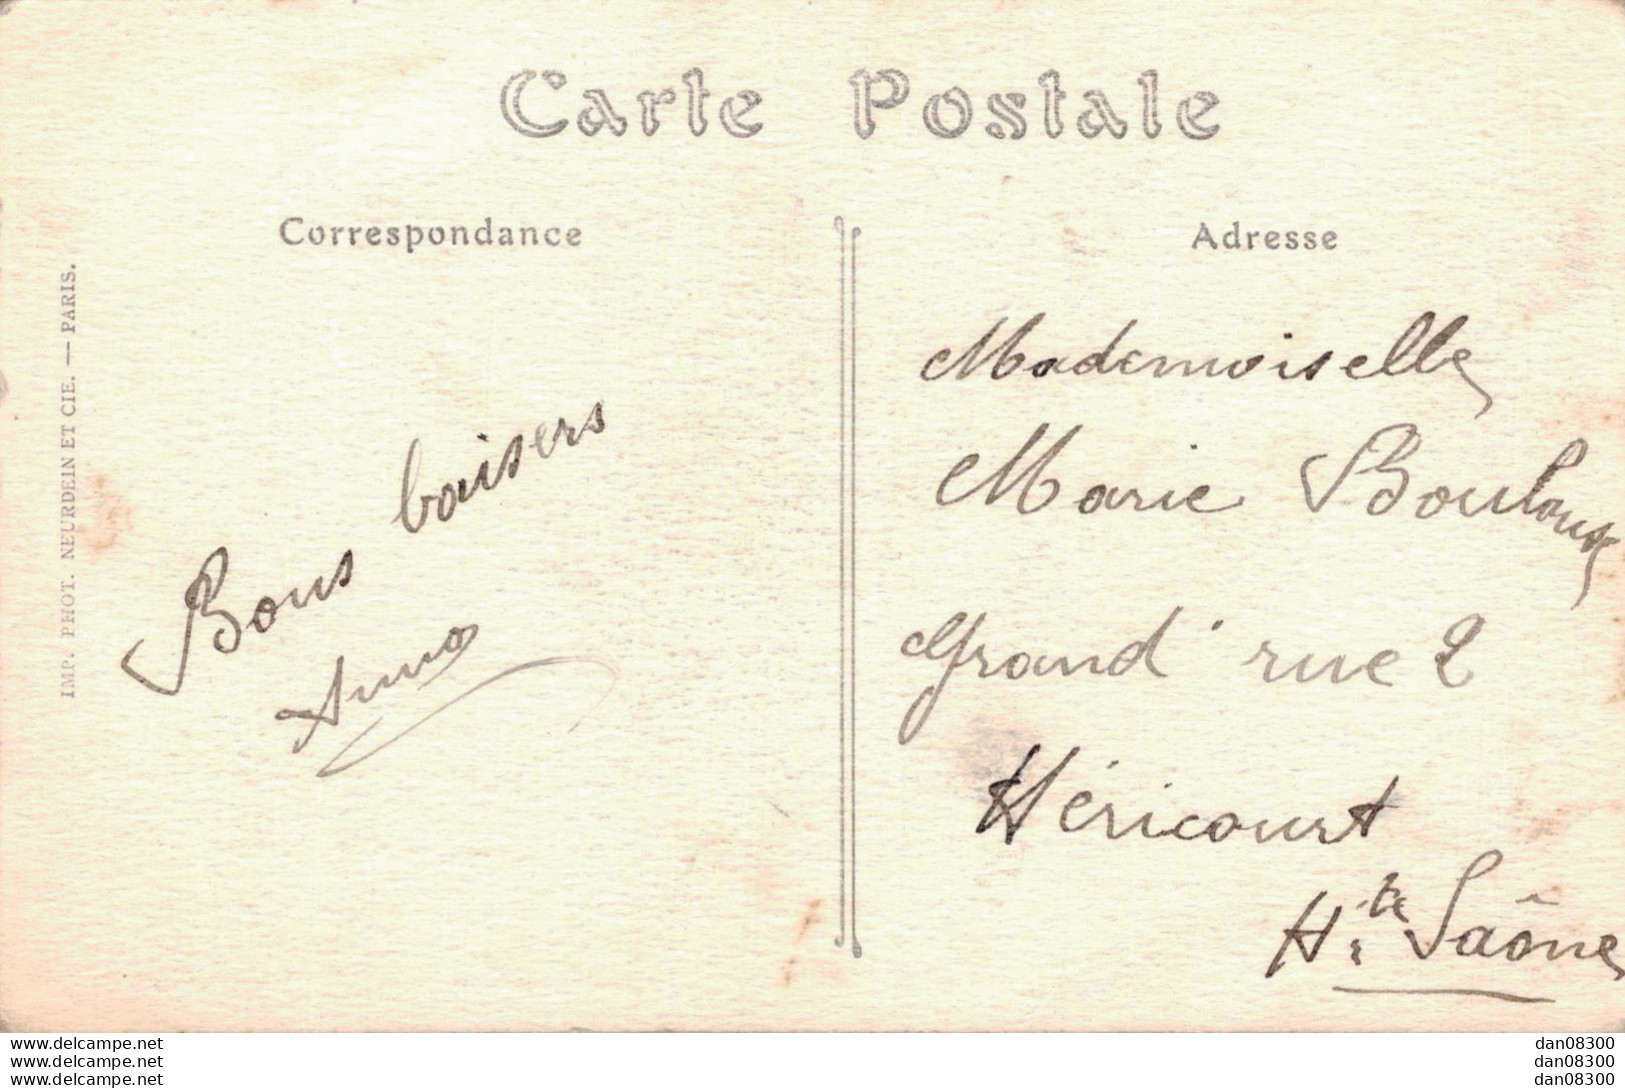 Carte Postale
Correspondance
Bons baisers
IMP. PHOT. NEURDEIN ET CIE. — PARIS.
Adresse
Mademoiselle
Marie
Grand' rue 2
Héricourt
Hte Saône
www.delcampe.net
www.delcampe.net
www.delcampe.net
dan08300
dan08300
dan08300